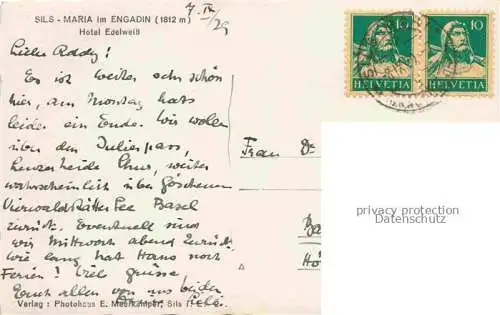 7. IV. /29
SILS - MARIA im ENGADIN (1812 m)
Hotel Edelweiß
10 10
HELVETIA HELVETIA
Liebe Roddy!
Es ist weiter sehr schön
hier, am Montag hats
leider ein Ende. Wir wollen
über den Julierpass,
Lenzerheide Chur, weiter
wahrscheinlich über Göschenen
Vierwaldstätter See Basel
zurück. Eventuell sind
wir Mittwoch abend zurück.
Wie lang hat Hans noch
Ferien? Viel Grüsse
Euch allen von uns beiden
Frau Dr
privacy protection
Datenschutz
Verlag: Photohaus E. Meerkämper, Sils i. E.